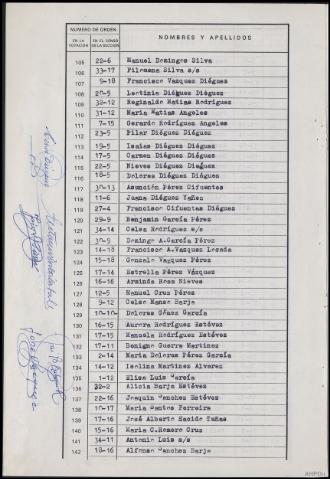 NUMERO DE ORDEN
EN LA VOTACION
EN EL CENSO DE LA SECCION
NOMBRES Y APELLIDOS
105 22-6 Manuel Domingos Silva
106 33-17 Filomena Silva s/s
107 9-18 Francisco Vazquez Diéguez
108 20-5 Lectinia Diéguez Diéguez
109 32-12 Reginaldo Matias Rodríguez
110 31-12 Maria Matias Angeles
111 7-15 Gerardo Rodríguez Angeles
112 23-5 Pilar Diéguez Diéguez
113 19-5 Isaias Diéguez Diéguez
114 17-5 Carmen Diéguez Diéguez
115 22-5 Nieves Diéguez Diéguez
116 18-5 Dolores Diéguez Diéguez
117 30-13 Asunción Pérez Cifuentes
118 11-6 Juana Diéguez Yañez
119 27-4 Francisco Cifuentes Diéguez
120 29-9 Benjamin García Pérez
121 34-14 Celsa Rodríguez s/s
122 30-9 Domingo A.García Pérez
123 14-18 Francisco A.Vazquez Losada
124 15-18 Gonzalo Vazquez Pérez
125 17-14 Estrella Pérez Vázquez
126 16-16 Arminda Rosa Nieves
127 12-5 Manuel Cruz Pérez
128 9-12 Celso Manso Barja
129 10-10 Dolores Gómez García
130 16-15 Aurora Rodríguez Estévez
131 17-15 Manuela Rodríguez Estévez
132 17-11 Benigno Guerra Martinez
133 2-14 Maria Dolores Pérez García
134 14-12 Isolina Martinez Alvarez
135 1-12 Elisa Luis García
136 32-2 Alicia Barja Estévez
137 22-16 Joaquin Sanchez Estévez
138 10-17 Maria Santos Ferreira
139 17-16 José Alberto Sacido Tuñas
140 15-16 Maria C.Romero Cruz
141 34-11 Antonio Luis s/s
142 18-16 Alfonso Sanchez Barja
AHPOU